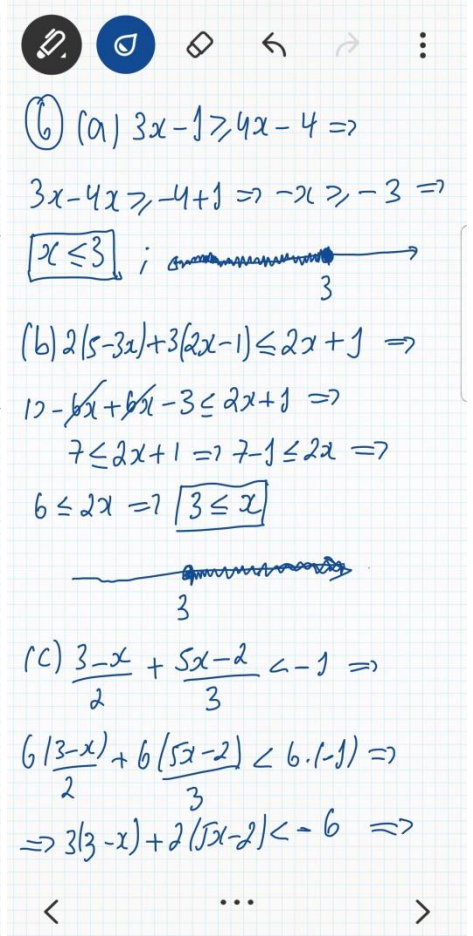 ⑥ (a) 3x-1⩾4x-4 =>
3x-4x⩾-4+1 => -x⩾-3 =>
x≤3 ;
3
(b) 2(5-3x)+3(2x-1)≤2x+1 =>
10-6x+6x-3≤2x+1 =>
7≤2x+1 => 7-1≤2x =>
6≤2x => 3≤x
3
(c) (3-x)/2 + (5x-2)/3 <-1 =>
6(3-x)/2 + 6(5x-2)/3 < 6·(-1) =>
=> 3(3-x)+2(5x-2)<-6 =>